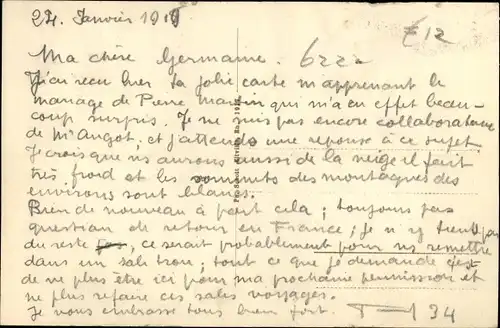 24. Janvier 1919
E 12
Ma chère Germaine. 622
J'ai reçu hier ta jolie carte m'apprenant le
mariage de Pierre qui m'a en effet beau-
coup surpris. Je ne suis pas encore collaborateur
de Mr Angot, et j'attends une réponse à ce sujet.
Je crois que ns aurons aussi de la neige il fait
très froid et les sommets des montagnes des
environs sont blancs.
Rien de nouveau à part cela ; toujours pas
question de retour en France, je n'y tiens pas
du reste, ce serait probablement pour ns remettre
dans un sale trou ; tout ce que je demande c'est
de ne plus être ici pour ma prochaine permission et
ne plus refaire ces sales voyages.
Je vous embrasse tous bien fort. 134